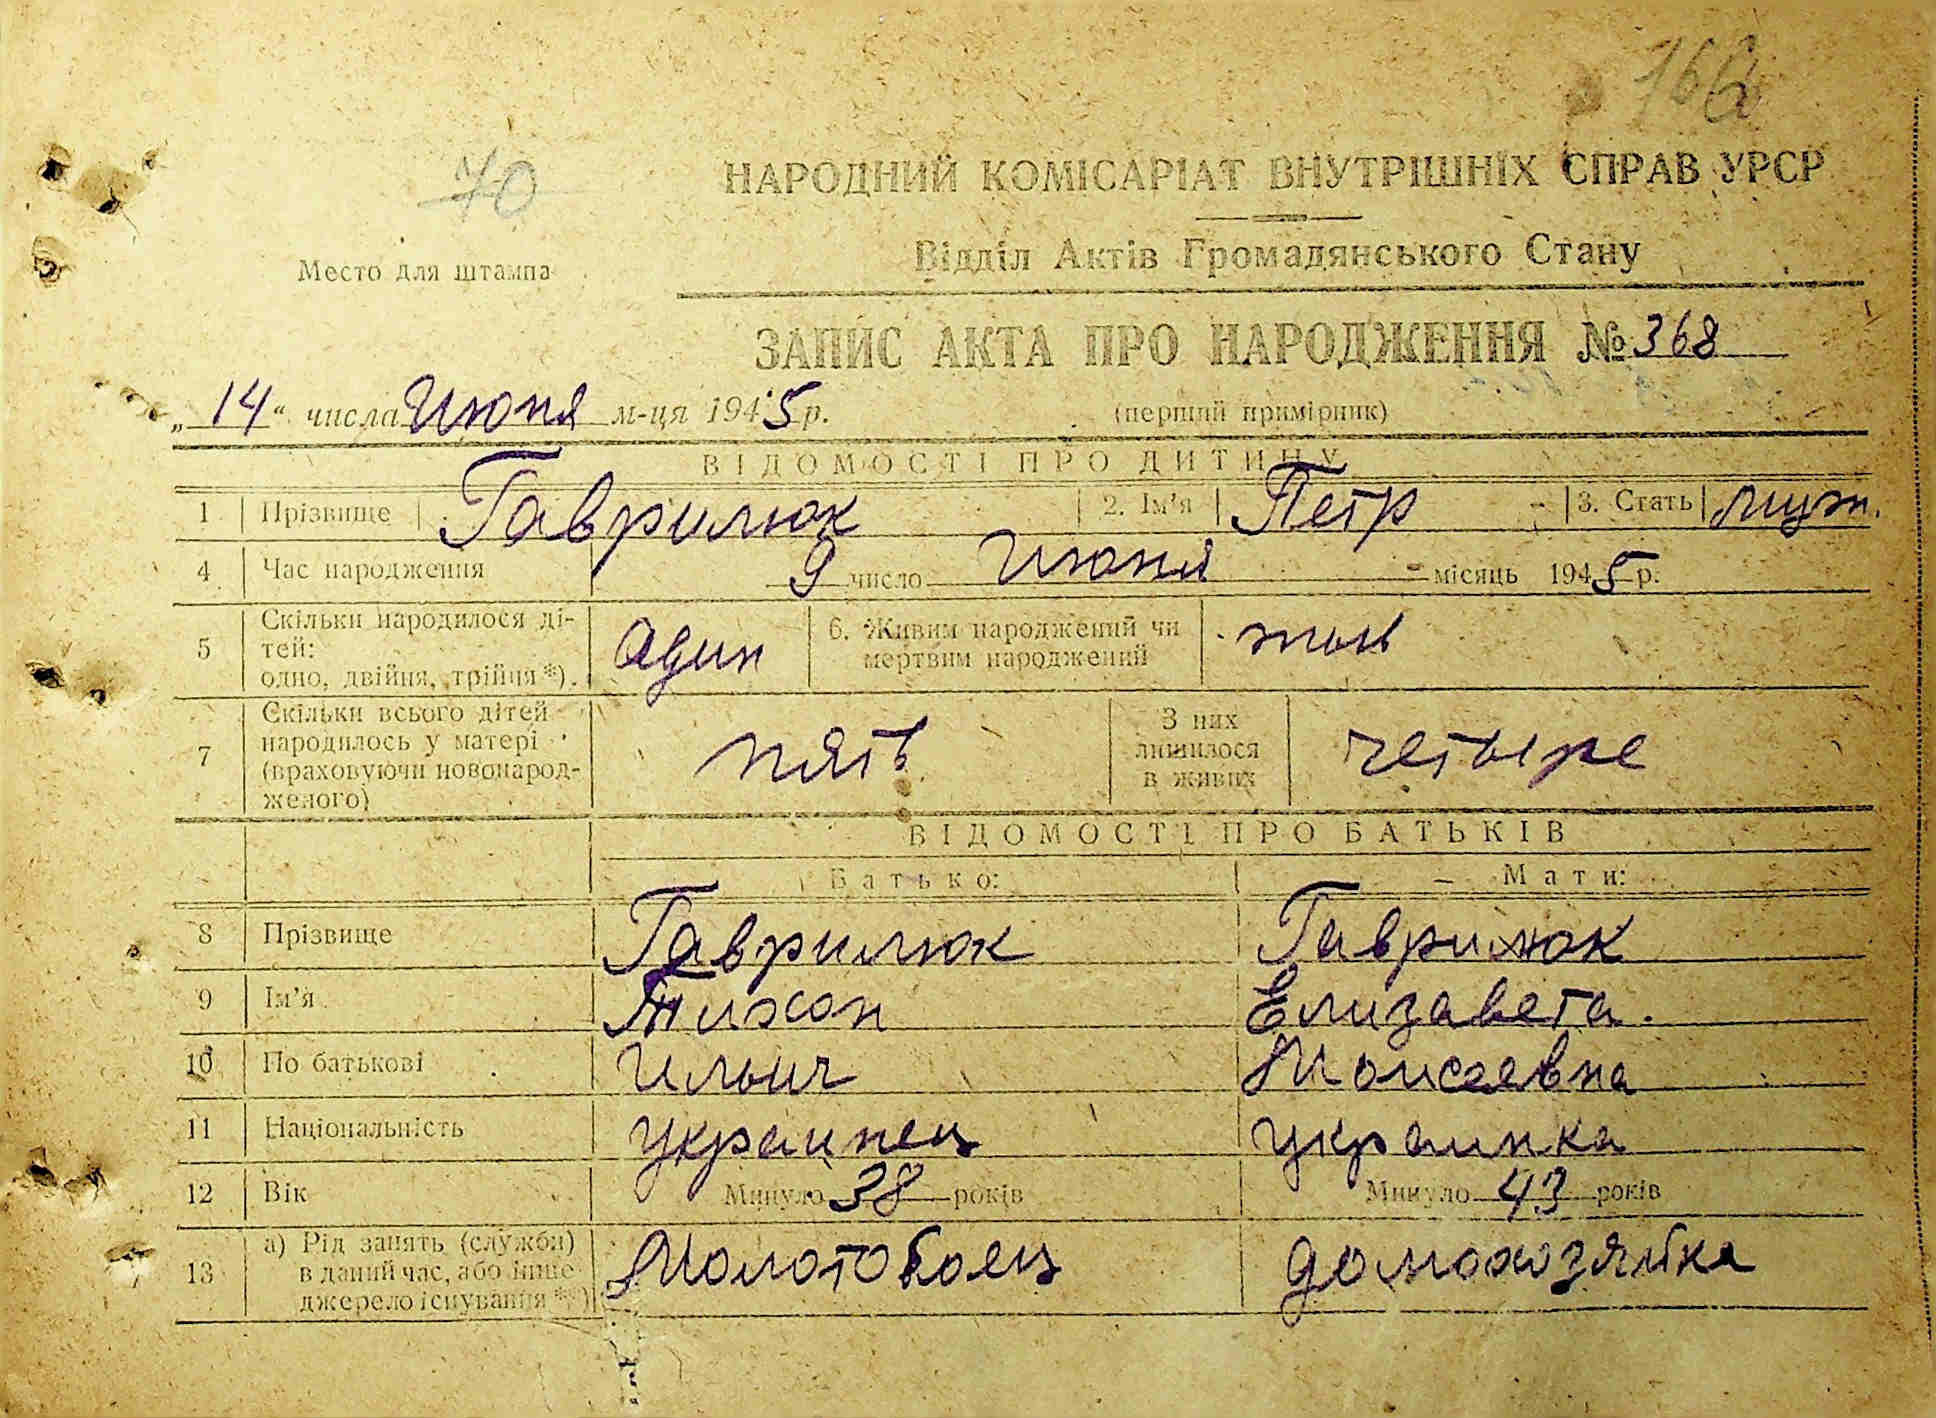 166
70
НАРОДНИЙ КОМІСАРІАТ ВНУТРІШНІХ СПРАВ УРСР
Место для штампа
Відділ Актів Громадянського Стану
ЗАПИС АКТА ПРО НАРОДЖЕННЯ № 368
„14“ числа Июня м-ця 1945 р. (перший примірник)
ВІДОМОСТІ ПРО ДИТИНУ
1 Прізвище Гаврилюк 2. Ім'я Петр 3. Стать муж.
4 Час народження 9 число Июня місяць 1945 р.
5 Скільки народилося ді-
тей:
одно, двійня, трійня*). Один 6. Живим народжений чи
мертвим народжений жив
7 Скільки всього дітей
народилось у матері
(враховуючи новонарод-
женого) пять З них
лишилося
в живих четыре
ВІДОМОСТІ ПРО БАТЬКІВ
Батько: Мати:
8 Прізвище Гаврилюк Гаврилюк
9 Ім'я Тихон Елизавета.
10 По батькові Ильич Моисеевна
11 Національність украинец украинка
12 Вік Минуло 38 років Минуло 43 років
13 а) Рід занять (служби)
в даний час, або інше
джерело існування**) Молотобоец домохозяйка